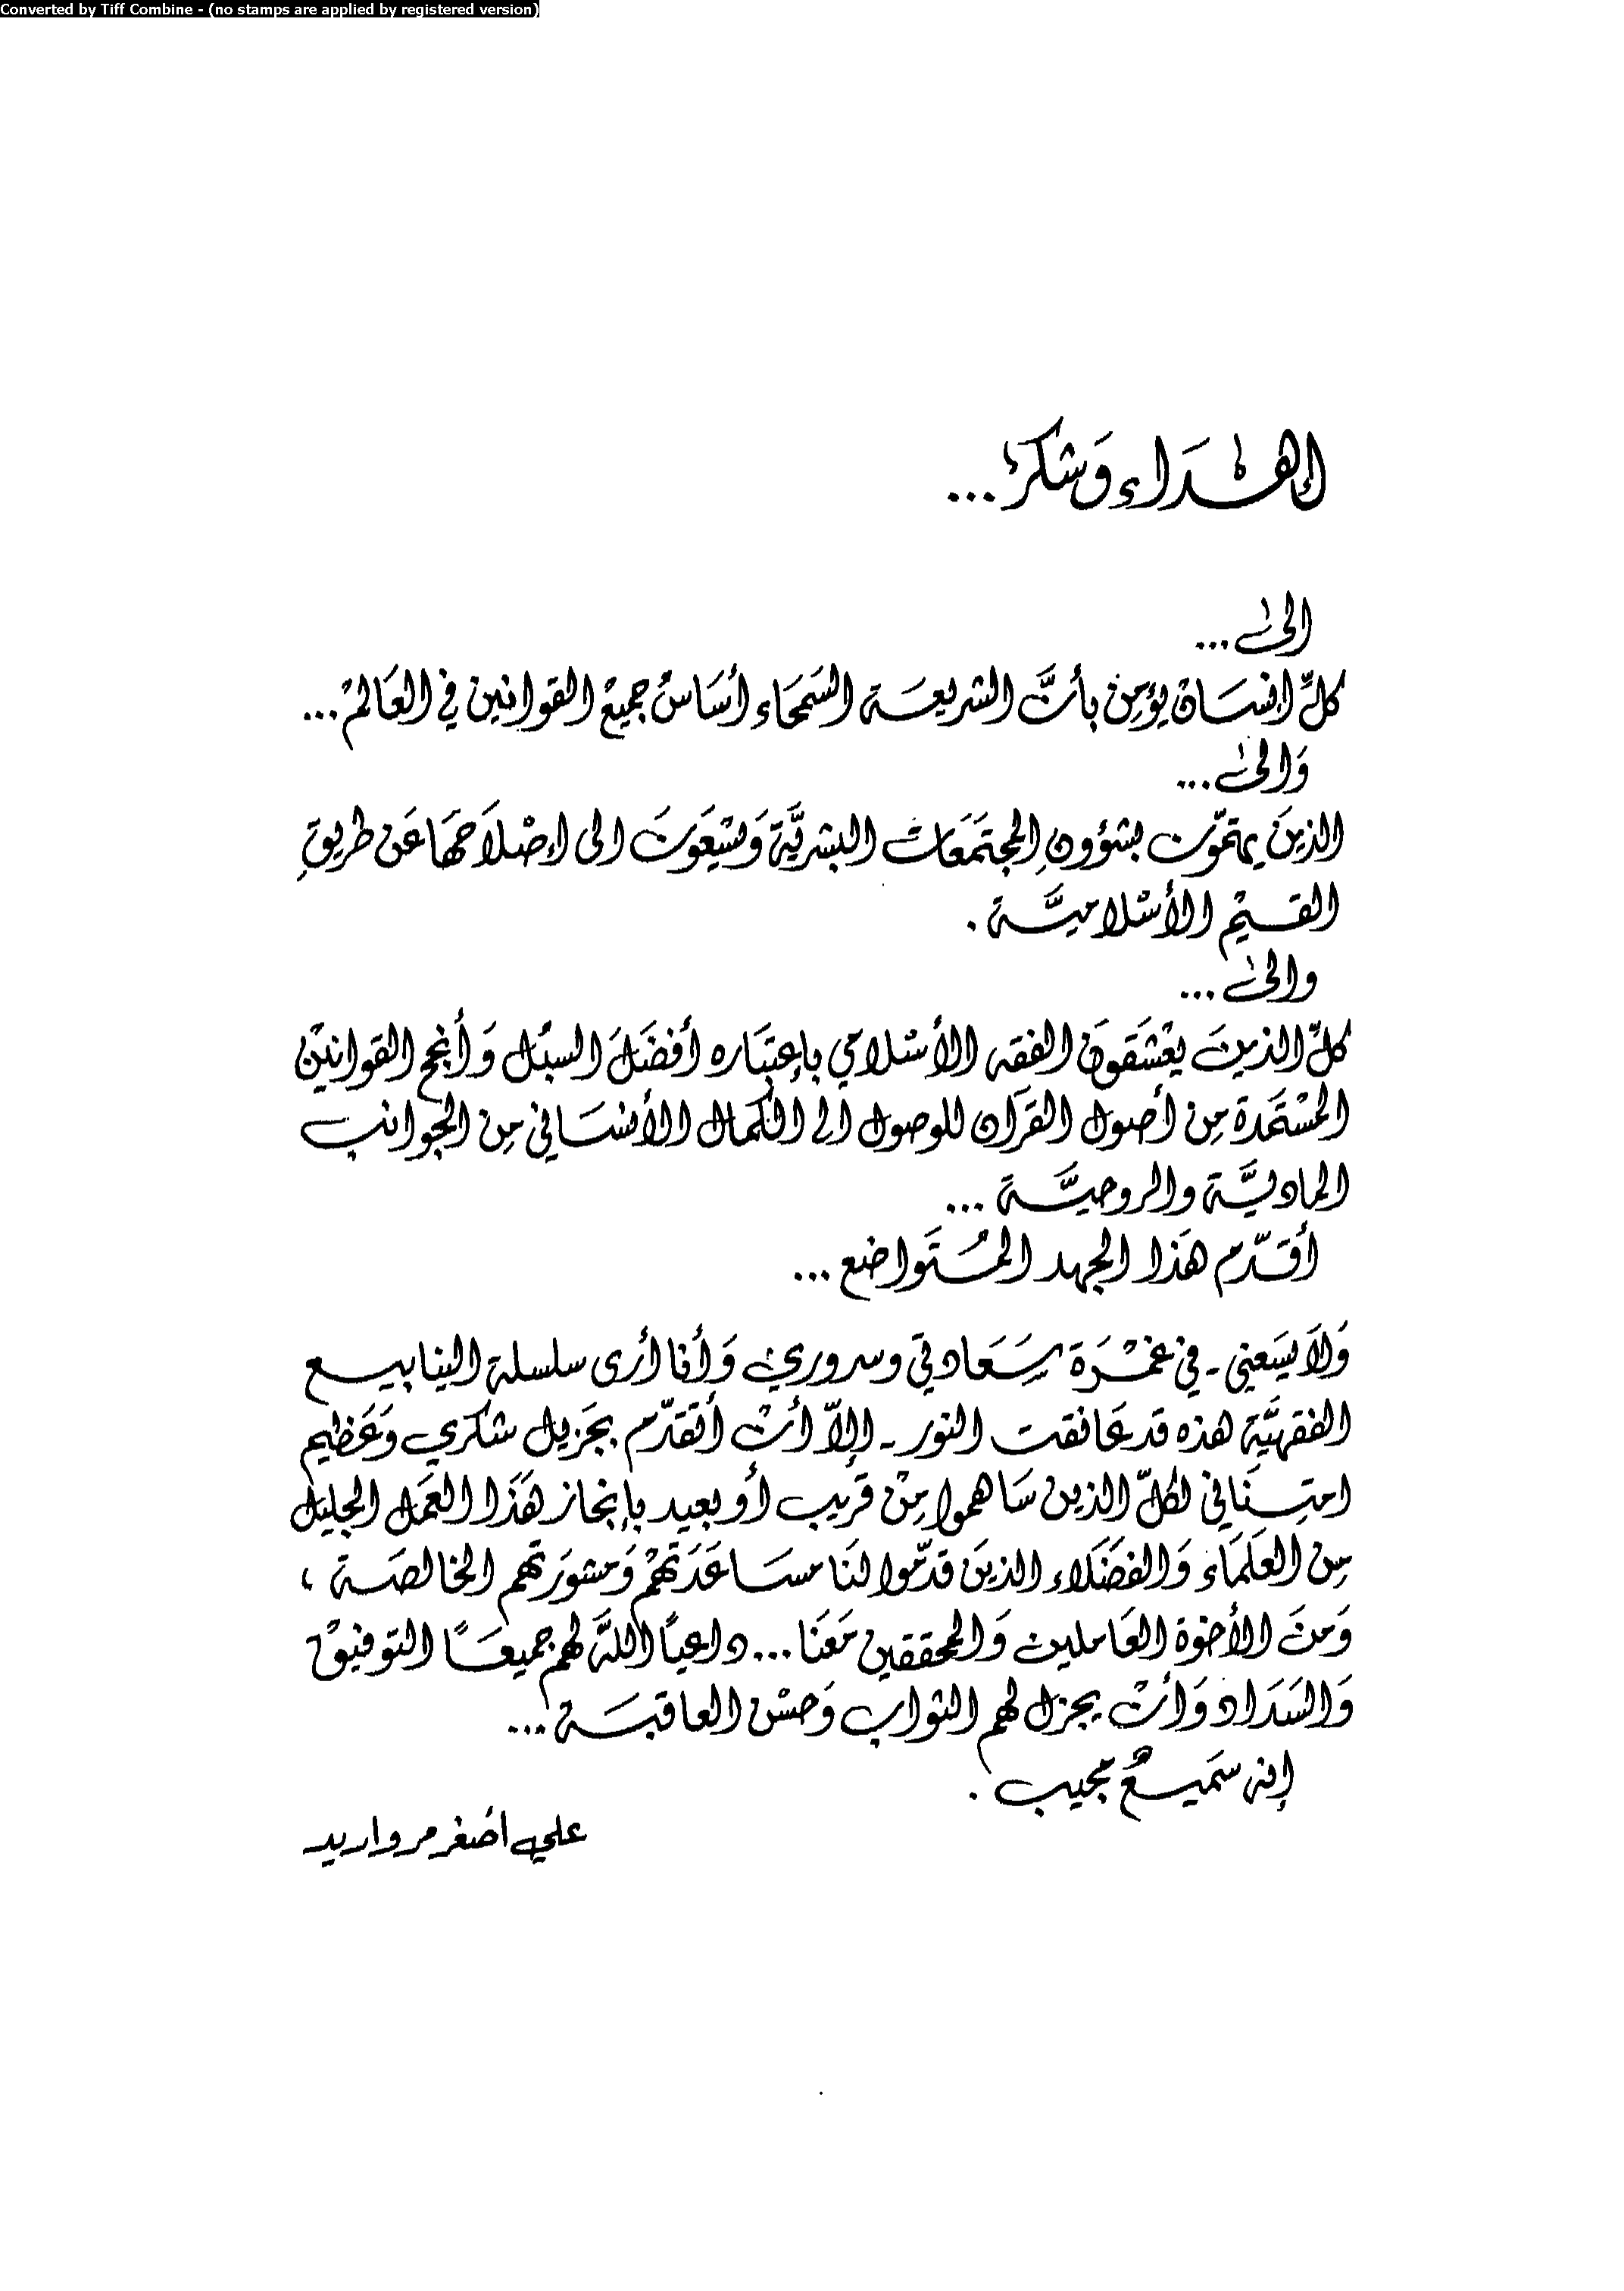 Converted by Tiff Combine - (no stamps are applied by registered version)
إهْداء وَشكرٌ ...
الىٰ ...
كلِّ انسَان يؤمِن بأنَّ الشريعَة السَمحَاء أسَاسُ جميع القوانين في العَالمْ ...
وَالىٰ ...
الذينَ يهتمّون بشؤونِ المجتَمَعَات البشريَّة وَيسْعَونَ الى إصْلاَحهَا عَن طريقِ
القيمْ الأسْلاميَّة .
والىٰ ...
كلِّ الذينَ يعْشَقونَ الفقه الأسْلامي بإعتبَاره أفضَلَ السبُل وَأنجح القوانينْ
المسْتمَدة مِن أصول القرآن للوصول الى الكمال الأنسَاني مِن الجوانب
الماديَّة والروحيَّة ...
أقدّم هَذا الجهد المُتَواضع ...
وَلاَ يسَعني - في غمْرَة سَعَادتي وسروري وَأنا أرى سلسلة الينابيع
الفقهيَّة هذه قد عَانقت النور - إلاّ أنْ أتقدّم بجَزيل شكري وَعَظيم
امتِنَاني لكلّ الذين سَاهموا مِنْ قريب أو بعيد بإنجاز هَذا العَمل الجليل
مِن العلَمَاء وَالفضَلاء الذينَ قدّموا لنَا مسَاعَدَتهمْ وَمشورَتهم الخالصَة ،
وَمنَ الأخوة العَاملين وَالمحققين مَعَنا ... داعياً اللهَ لهم جميعَاً التوفيقْ
وَالسَدَاد وَأنْ يجزل لهم الثواب وَحسْن العاقبَة ...
إنه سَميعٌ مجيب .
علي أصْغر مرواريد